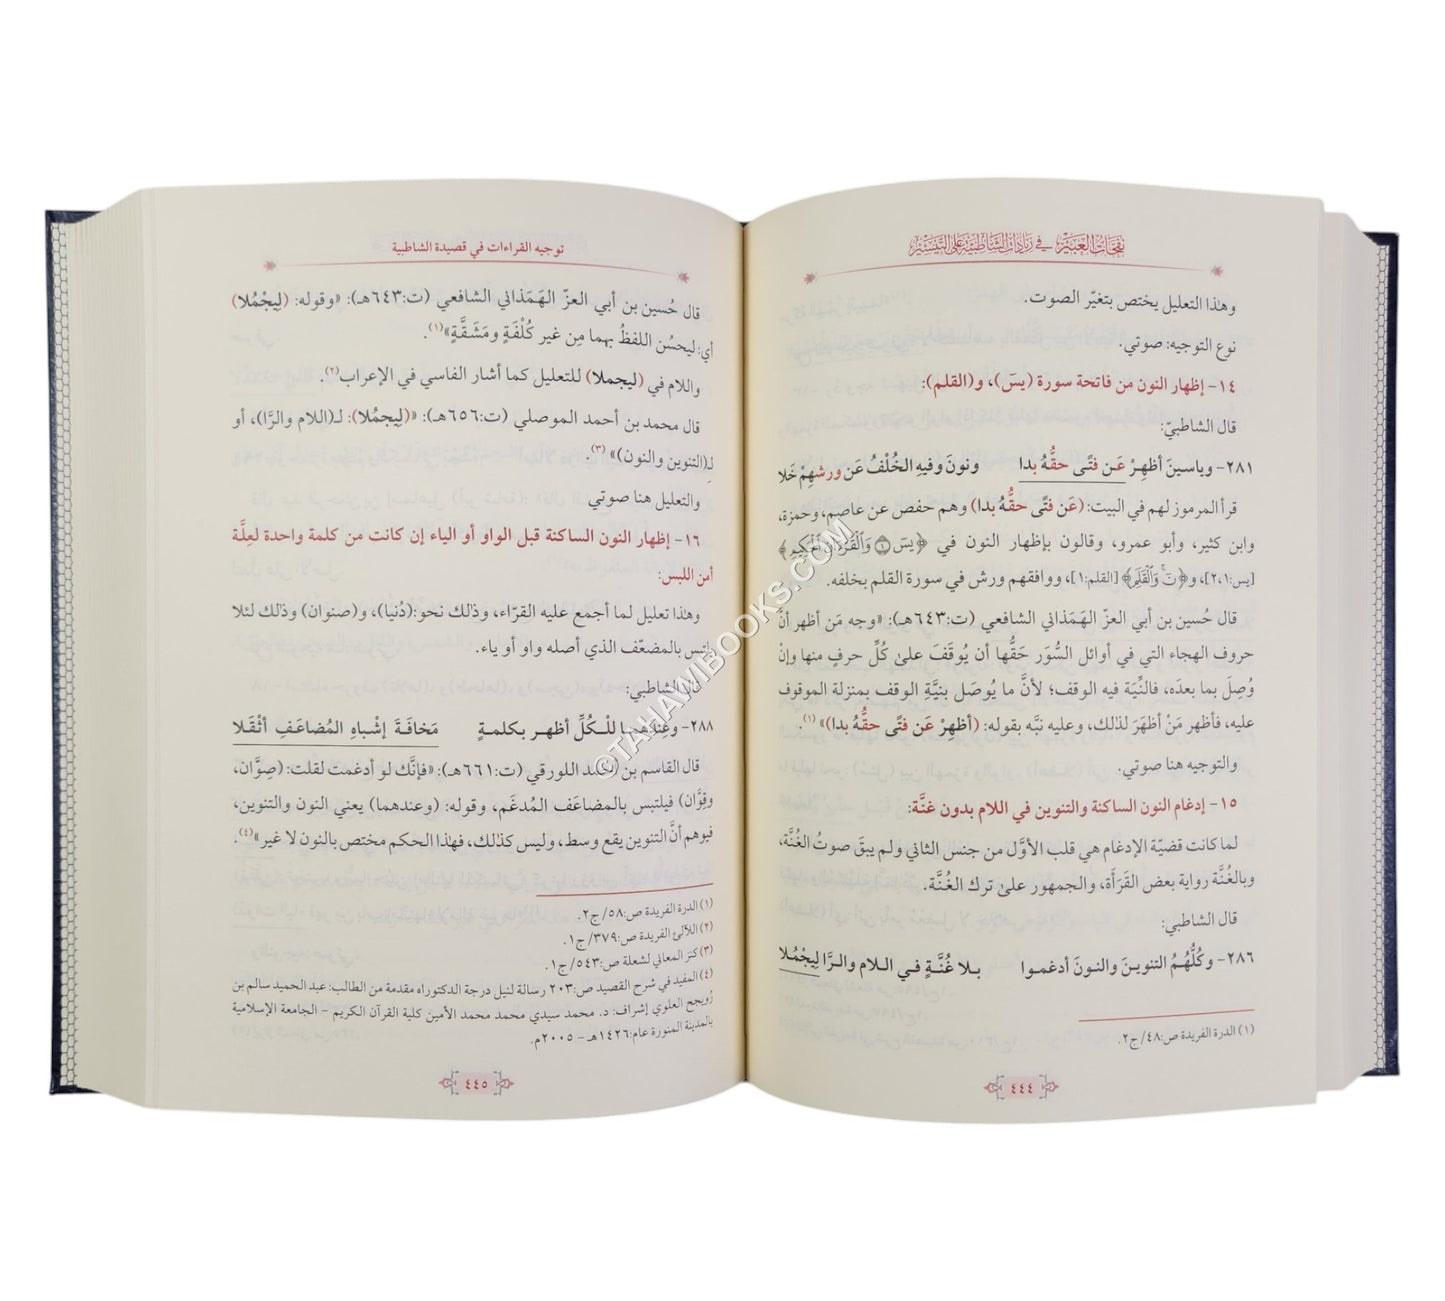 نفحات العبير في زيادات الشاطبية على التيسير
وهٰذا التعليل يختص بتغيّر الصوت.
نوع التوجيه: صوتي.
١٤- إظهار النون من فاتحة سورة (يسٓ)، و(القلم):
قال الشاطبيّ:
٢٨١- وياسينَ أظهِرْ عَن فَتًى حقُّهُ بدا ونونَ وفيهِ الخُلْفُ عَن ورشهِمْ خَلا
قرأ المرموز لهم في البيت: (عَن فتًى حقُّهُ بدا) وهم حفص عن عاصم، وحمزة،
وابن كثير، وأبو عمرو، وقالون بإظهار النون في ﴿يسٓ ۝١ وَٱلۡقُرۡءَانِ ٱلۡحَكِيمِ﴾
[يس:٢،١]، و﴿نٓۚ وَٱلۡقَلَمِ﴾ [القلم:١]، ووافقهم ورش في سورة القلم بخلفه.
قال حُسين بن أبي العزّ الهَمَذاني الشافعي (ت:٦٤٣هـ): «وجه مَن أظهر أنَّ
حروف الهجاء التي في أوائل السُّوَر حَقُّها أن يُوقَفَ علىٰ كُلِّ حرفٍ منها وإنْ
وُصِلَ بما بعدَه، فالنِّيَة فيه الوقف؛ لأنَّ ما يُوصَل بنيَّةِ الوقف بمنزلة الموقوف
عليه، فأظهر مَنْ أظهَرَ لذٰلك، وعليه نبَّه بقوله: (أظهِرْ عَن فتًى حقُّهُ بدا)»(١).
والتوجيه هنا صوتي.
١٥- إدغام النون الساكنة والتنوين في اللام بدون غنَّة:
لما كانت قضيّة الإدغام هي قلب الأوَّل من جنس الثاني ولم يبقَ صوتُ الغُنَّة،
وبالغُنَّة رواية بعض القَرَأَة، والجمهور علىٰ ترك الغُنَّة.
قال الشاطبي:
٢٨٦- وكُلُّهُمُ التنوينَ والنونَ أدغموا بلا غُنَّةٍ في اللام والرَّا لِيجْمُلا
(١) الدرة الفريدة ص:٤٨/ ج٢.
٤٤٤
توجيه القراءات في قصيدة الشاطبية
قال حُسين بن أبي العزّ الهَمَذاني الشافعي (ت:٦٤٣هـ): «وقوله: (لِيجْمُلا)
أي: ليحسُن اللفظُ بهما مِن غير كُلْفَةٍ ومَشَقَّةٍ»(١).
واللام في (ليجملا) للتعليل كما أشار الفاسي في الإعراب(٢).
قال محمد بن أحمد الموصلي (ت:٦٥٦هـ): «(لِيجمُلا): لـ(اللام والرَّا)، أو
لـ(التنوين والنون)»(٣).
والتعليل هنا صوتي
١٦- إظهار النون الساكنة قبل الواو أو الياء إن كانت من كلمة واحدة لعِلَّة
أمن اللبس:
وهٰذا تعليل لما أجمع عليه القرّاء، وذلك نحو: (دُنيا)، و(صنوان) وذلك لئلا
يلتبس بالمضعّف الذي أصله واو أو ياء.
قال الشاطبي:
٢٨٨- وعندهما للكُلِّ أظهر بكلمةٍ مَخافَةَ إشْباهِ المُضاعَفِ أثْقَلا
قال القاسم بن أحمد اللورقي (ت:٦٦١هـ): «فإنَّك لو أدغمت لقلت: (صِوَّان،
وقِوَّان) فيلتبس بالمضاعَف المُدغَم، وقوله: (وعندهما) يعني النون والتنوين،
فيوهم أنَّ التنوين يقع وسط، وليس كذٰلك، فهٰذا الحكم مختص بالنون لا غير»(٤).
(١) الدرة الفريدة ص:٥٨/ ج٢.
(٢) اللآلئ الفريدة ص:٣٧٩/ ج١.
(٣) كنز المعاني لشعلة ص:٥٤٣/ ج١.
(٤) المفيد في شرح القصيد ص:٢٠٣ رسالة لنيل درجة الدكتوراه مقدمة من الطالب: عبد الحميد سالم بن
رُويجح العلوي إشراف: د. محمد سيدي محمد محمد الأمين كلية القرآن الكريم - الجامعة الإسلامية
بالمدينة المنورة عام:١٤٢٦هـ - ٢٠٠٥م.
٤٤٥
©TAHAWIBOOKS.COM